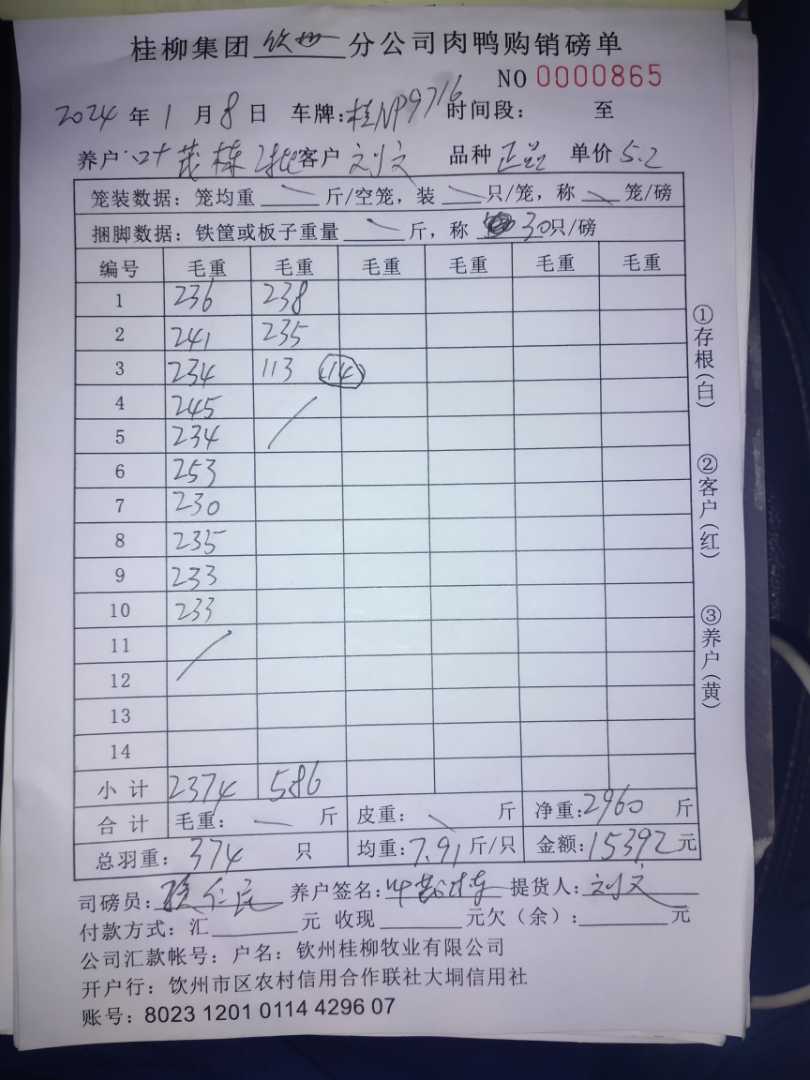 桂柳集团 钦州 分公司肉鸭购销磅单
NO 0000865
2024 年 1 月 8 日 车牌:桂NP9716 时间段: 至
养户:叶茂栋 客户 刘文 品种 正兰 单价 5.2
笼装数据: 笼均重 斤/空笼, 装 只/笼, 称 笼/磅
捆脚数据: 铁筐或板子重量 斤, 称 30只/磅
编号 毛重 毛重 毛重 毛重 毛重 毛重
1 236 238
2 241 235
3 234 113 (14)
4 245
5 234
6 253
7 230
8 235
9 233
10 233
11
12
13
14
小 计 2374 586
合 计 毛重: 斤 皮重: 斤 净重:2960 斤
总羽重: 374 只 均重:7.91 斤/只 金额:15392 元
司磅员: 养户签名:叶茂栋 提货人:刘文
付款方式: 汇 元 收现 元欠(余): 元
公司汇款帐号: 户名: 钦州桂柳牧业有限公司
开户行: 钦州市区农村信用合作联社大垌信用社
账号: 8023 1201 0114 4296 07
①存根(白)
②客户(红)
③养户(黄)